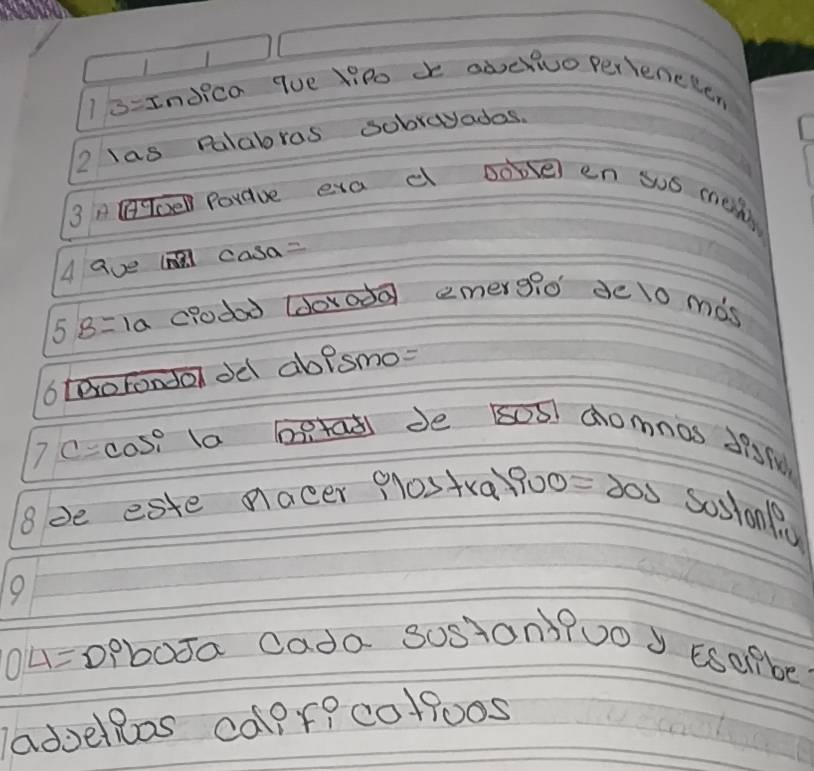 1 3=Indica que tipo de adjetivo pertenecen
2 las Palabras sobrayadas.
3 A Aquel Parque era el doble en sus
4 que mi casa=
5 B=la ciudad dorada emergió de lo más
6 profundo del abismo=
7 C=casi la mitad de sus alomnos
8 de este placer ilostrativo=dos
9
10 4=Diboja Cada sustantivo y Escribe
adjetivos calificativos